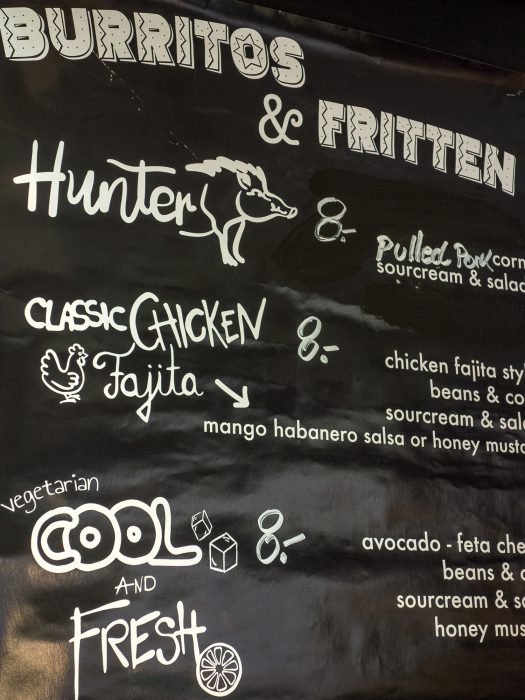 BURRITOS
& FRITTEN
Hunter 8.-
Pulled Pork corn
sourcream & salad
CLASSIC CHICKEN 8.-
Fajita
chicken fajita sty
beans & co
sourcream & sal
mango habanero salsa or honey musta
vegetarian
COOL 8.-
AND
FRESH
avocado - feta che
beans & c
sourcream & sa
honey mus